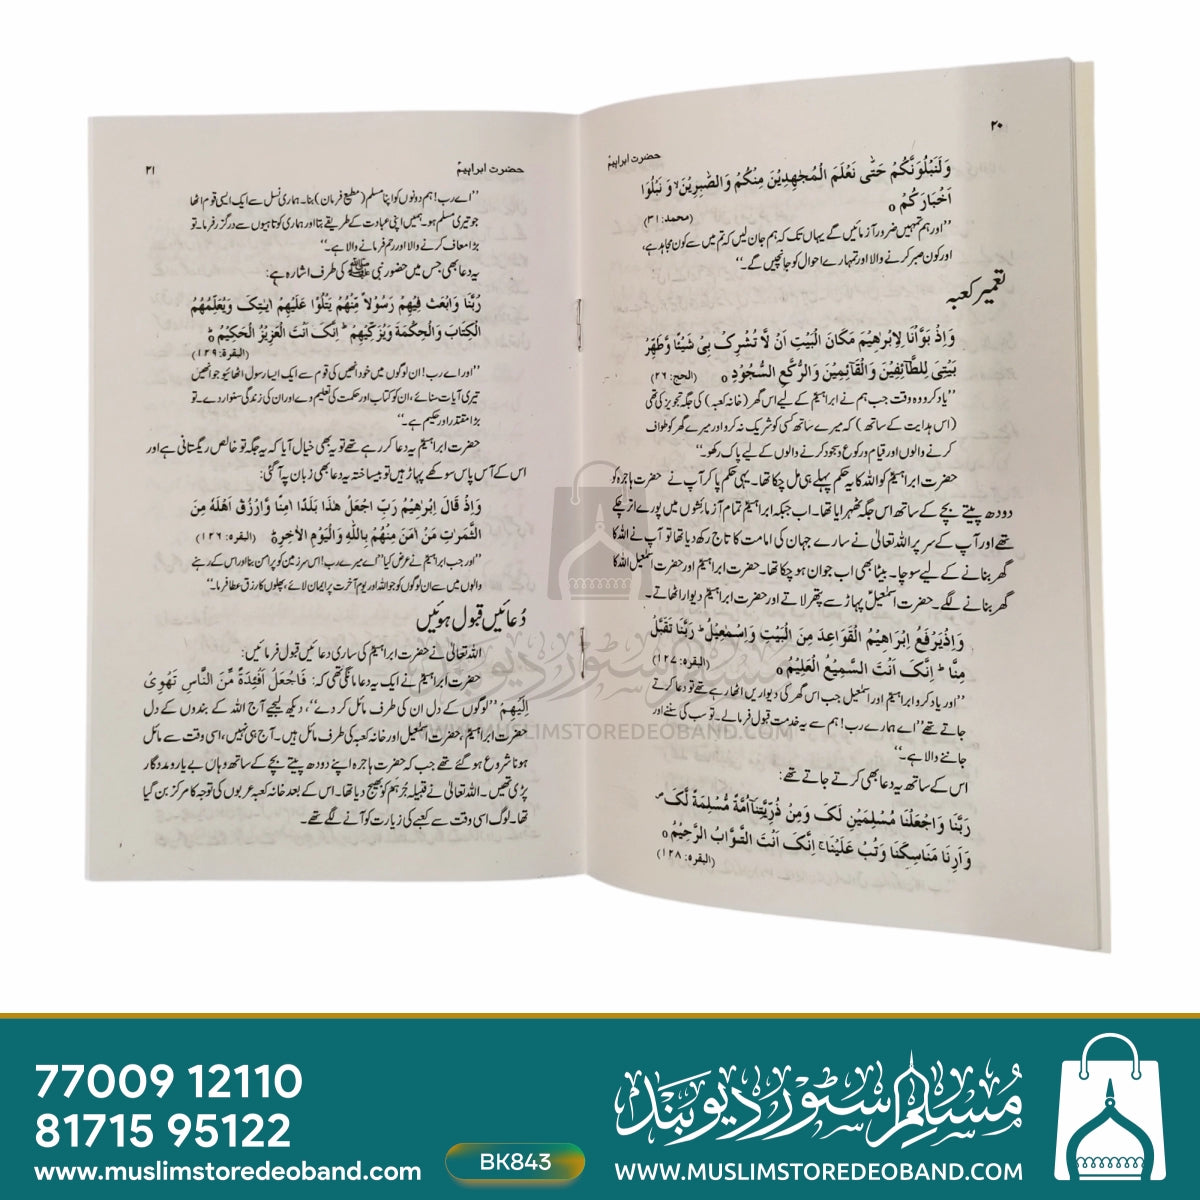 ۲۰
حضرت ابراہیمؑ
وَلَنَبْلُوَنَّكُمْ حَتّٰى نَعْلَمَ الْمُجٰهِدِيْنَ مِنْكُمْ وَالصّٰبِرِيْنَ وَ نَبْلُوَا
اَخْبَارَكُمْ ٥ (محمد: ۳۱)
’’اور ہم تمہیں ضرور آزمائیں گے یہاں تک کہ ہم جان لیں کہ تم میں سے کون مجاہد ہے،
اور کون صبر کرنے والا اور تمہارے احوال کو جانچیں گے۔‘‘
تعمیر کعبہ
وَاِذْ بَوَّاْنَا لِاِبْرٰهِيْمَ مَكَانَ الْبَيْتِ اَنْ لَّا تُشْرِكْ بِىْ شَيْئًا وَّطَهِّرْ
بَيْتِىَ لِلطَّآئِفِيْنَ وَالْقَآئِمِيْنَ وَالرُّكَّعِ السُّجُوْدِ ٥ (الحج: ۲۶)
’’یاد کرو وہ وقت جب ہم نے ابراہیمؑ کے لیے اس گھر (خانہ کعبہ) کی جگہ تجویز کی تھی
(اس ہدایت کے ساتھ) کہ میرے ساتھ کسی کو شریک نہ کرو اور میرے گھر کو طواف
کرنے والوں اور قیام و رکوع و سجود کرنے والوں کے لیے پاک رکھو۔‘‘
حضرت ابراہیمؑ کو اللہ کا یہ حکم پہلے ہی مل چکا تھا۔ یہی حکم پا کر آپ نے حضرت ہاجرہ کو
دودھ پیتے بچے کے ساتھ اس جگہ ٹھہرایا تھا۔ اب جبکہ ابراہیمؑ تمام آزمائشوں میں پورے اتر چکے
تھے اور آپ کے سر پر اللہ تعالیٰ نے سارے جہان کی امامت کا تاج رکھ دیا تھا تو آپ نے اللہ کا
گھر بنانے کے لیے سوچا۔ بیٹا بھی اب جوان ہو چکا تھا۔ حضرت ابراہیمؑ اور حضرت اسمٰعیلؑ اللہ کا
گھر بنانے لگے۔ حضرت اسمٰعیلؑ پہاڑ سے پتھر لاتے اور حضرت ابراہیمؑ دیوار اٹھاتے۔
وَاِذْ يَرْفَعُ اِبْرَاهِيْمُ الْقَوَاعِدَ مِنَ الْبَيْتِ وَاِسْمٰعِيْلُ ؕ رَبَّنَا تَقَبَّلْ
مِنَّا ؕ اِنَّكَ اَنْتَ السَّمِيْعُ الْعَلِيْمُ ٥ (البقرہ: ۱۲۷)
’’اور یاد کرو ابراہیمؑ اور اسمٰعیلؑ جب اس گھر کی دیواریں اٹھا رہے تھے تو دعا کرتے
جاتے تھے ’’اے ہمارے رب! ہم سے یہ خدمت قبول فرما لے۔ تو سب کی سننے اور
جاننے والا ہے۔‘‘
اس کے ساتھ یہ دعا بھی کرتے جاتے تھے:
رَبَّنَا وَاجْعَلْنَا مُسْلِمَيْنِ لَكَ وَمِنْ ذُرِّيَّتِنَآ اُمَّةً مُّسْلِمَةً لَّكَ
وَاَرِنَا مَنَاسِكَنَا وَتُبْ عَلَيْنَا ج اِنَّكَ اَنْتَ التَّوَّابُ الرَّحِيْمُ ٥
(البقرہ: ۱۲۸)
۲۱
حضرت ابراہیمؑ
’’اے رب! ہم دونوں کو اپنا مسلم (مطیع فرمان) بنا۔ ہماری نسل سے ایک ایسی قوم اٹھا
جو تیری مسلم ہو۔ ہمیں اپنی عبادت کے طریقے بتا اور ہماری کوتاہیوں سے درگزر فرما۔ تو
بڑا معاف کرنے والا اور رحم فرمانے والا ہے۔‘‘
یہ دعا بھی جس میں حضور نبی ﷺ کی طرف اشارہ ہے:
رَبَّنَا وَابْعَثْ فِيْهِمْ رَسُوْلًا مِّنْهُمْ يَتْلُوْا عَلَيْهِمْ اٰيٰتِكَ وَيُعَلِّمُهُمُ
الْكِتٰبَ وَالْحِكْمَةَ وَيُزَكِّيْهِمْ ؕ اِنَّكَ اَنْتَ الْعَزِيْزُ الْحَكِيْمُ ٥
(البقرۃ: ۱۲۹)
’’اور اے رب! ان لوگوں میں خود انھیں کی قوم سے ایک ایسا رسول اٹھائیو جو انھیں
تیری آیات سنائے، ان کو کتاب اور حکمت کی تعلیم دے اور ان کی زندگی سنوار دے۔ تو
بڑا مقتدر اور حکیم ہے۔‘‘
حضرت ابراہیمؑ یہ دعا کر رہے تھے تو یہ بھی خیال آیا کہ یہ جگہ تو خالص ریگستانی ہے اور
اس کے آس پاس سوکھے پہاڑ ہیں تو بیساختہ یہ دعا بھی زبان پہ آ گئی:
وَاِذْ قَالَ اِبْرٰهِيْمُ رَبِّ اجْعَلْ هٰذَا بَلَدًا اٰمِنًا وَّارْزُقْ اَهْلَهٗ مِنَ
الثَّمَرٰتِ مَنْ اٰمَنَ مِنْهُمْ بِاللّٰهِ وَالْيَوْمِ الْاٰخِرِ ٥ (البقرہ: ۱۲۶)
’’اور جب ابراہیمؑ نے عرض کیا ’’اے میرے رب! اس سرزمین کو پر امن بنا اور اس کے رہنے
والوں میں سے ان لوگوں کو جو اللہ اور یوم آخرت پر ایمان لائے، پھلوں کا رزق عطا فرما۔‘‘
دُعائیں قبول ہوئیں
اللہ تعالیٰ نے حضرت ابراہیمؑ کی ساری دعائیں قبول فرمائیں:
حضرت ابراہیمؑ نے ایک یہ دعا مانگی تھی کہ: فَاجْعَلْ اَفْئِدَةً مِّنَ النَّاسِ تَهْوِىْ
اِلَيْهِمْ ’’لوگوں کے دل ان کی طرف مائل کر دے‘‘، دیکھ لیجیے آج اللہ کے بندوں کے دل
حضرت ابراہیمؑ، حضرت اسمٰعیلؑ اور خانہ کعبہ کی طرف مائل ہیں۔ آج ہی نہیں، اسی وقت سے مائل
ہونا شروع ہو گئے تھے جب کہ حضرت ہاجرہ اپنے دودھ پیتے بچے کے ساتھ وہاں بے یار و مددگار
پڑی تھیں۔ اللہ تعالیٰ نے قبیلہ جُرہُم کو بھیج دیا تھا۔ اس کے بعد خانہ کعبہ عربوں کی توجہ کا مرکز بن گیا
تھا۔ لوگ اسی وقت سے کعبے کی زیارت کو آنے لگے تھے۔
مسلم سٹور دیوبند
WWW.MUSLIMSTOREDEOBAND.COM
77009 12110
81715 95122
www.muslimstoredeoband.com
BK843
مسلم سٹور دیوبند
WWW.MUSLIMSTOREDEOBAND.COM